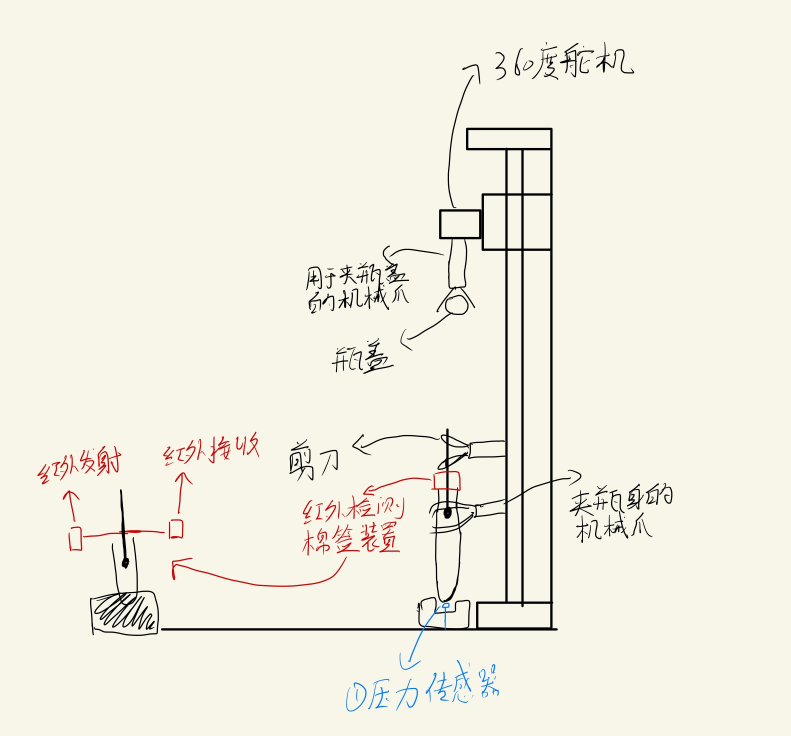 360度舵机
用于夹瓶盖
的机械爪
瓶盖
剪刀
红外发射
红外接收
红外检测
棉签装置
夹瓶身的
机械爪
①压力传感器